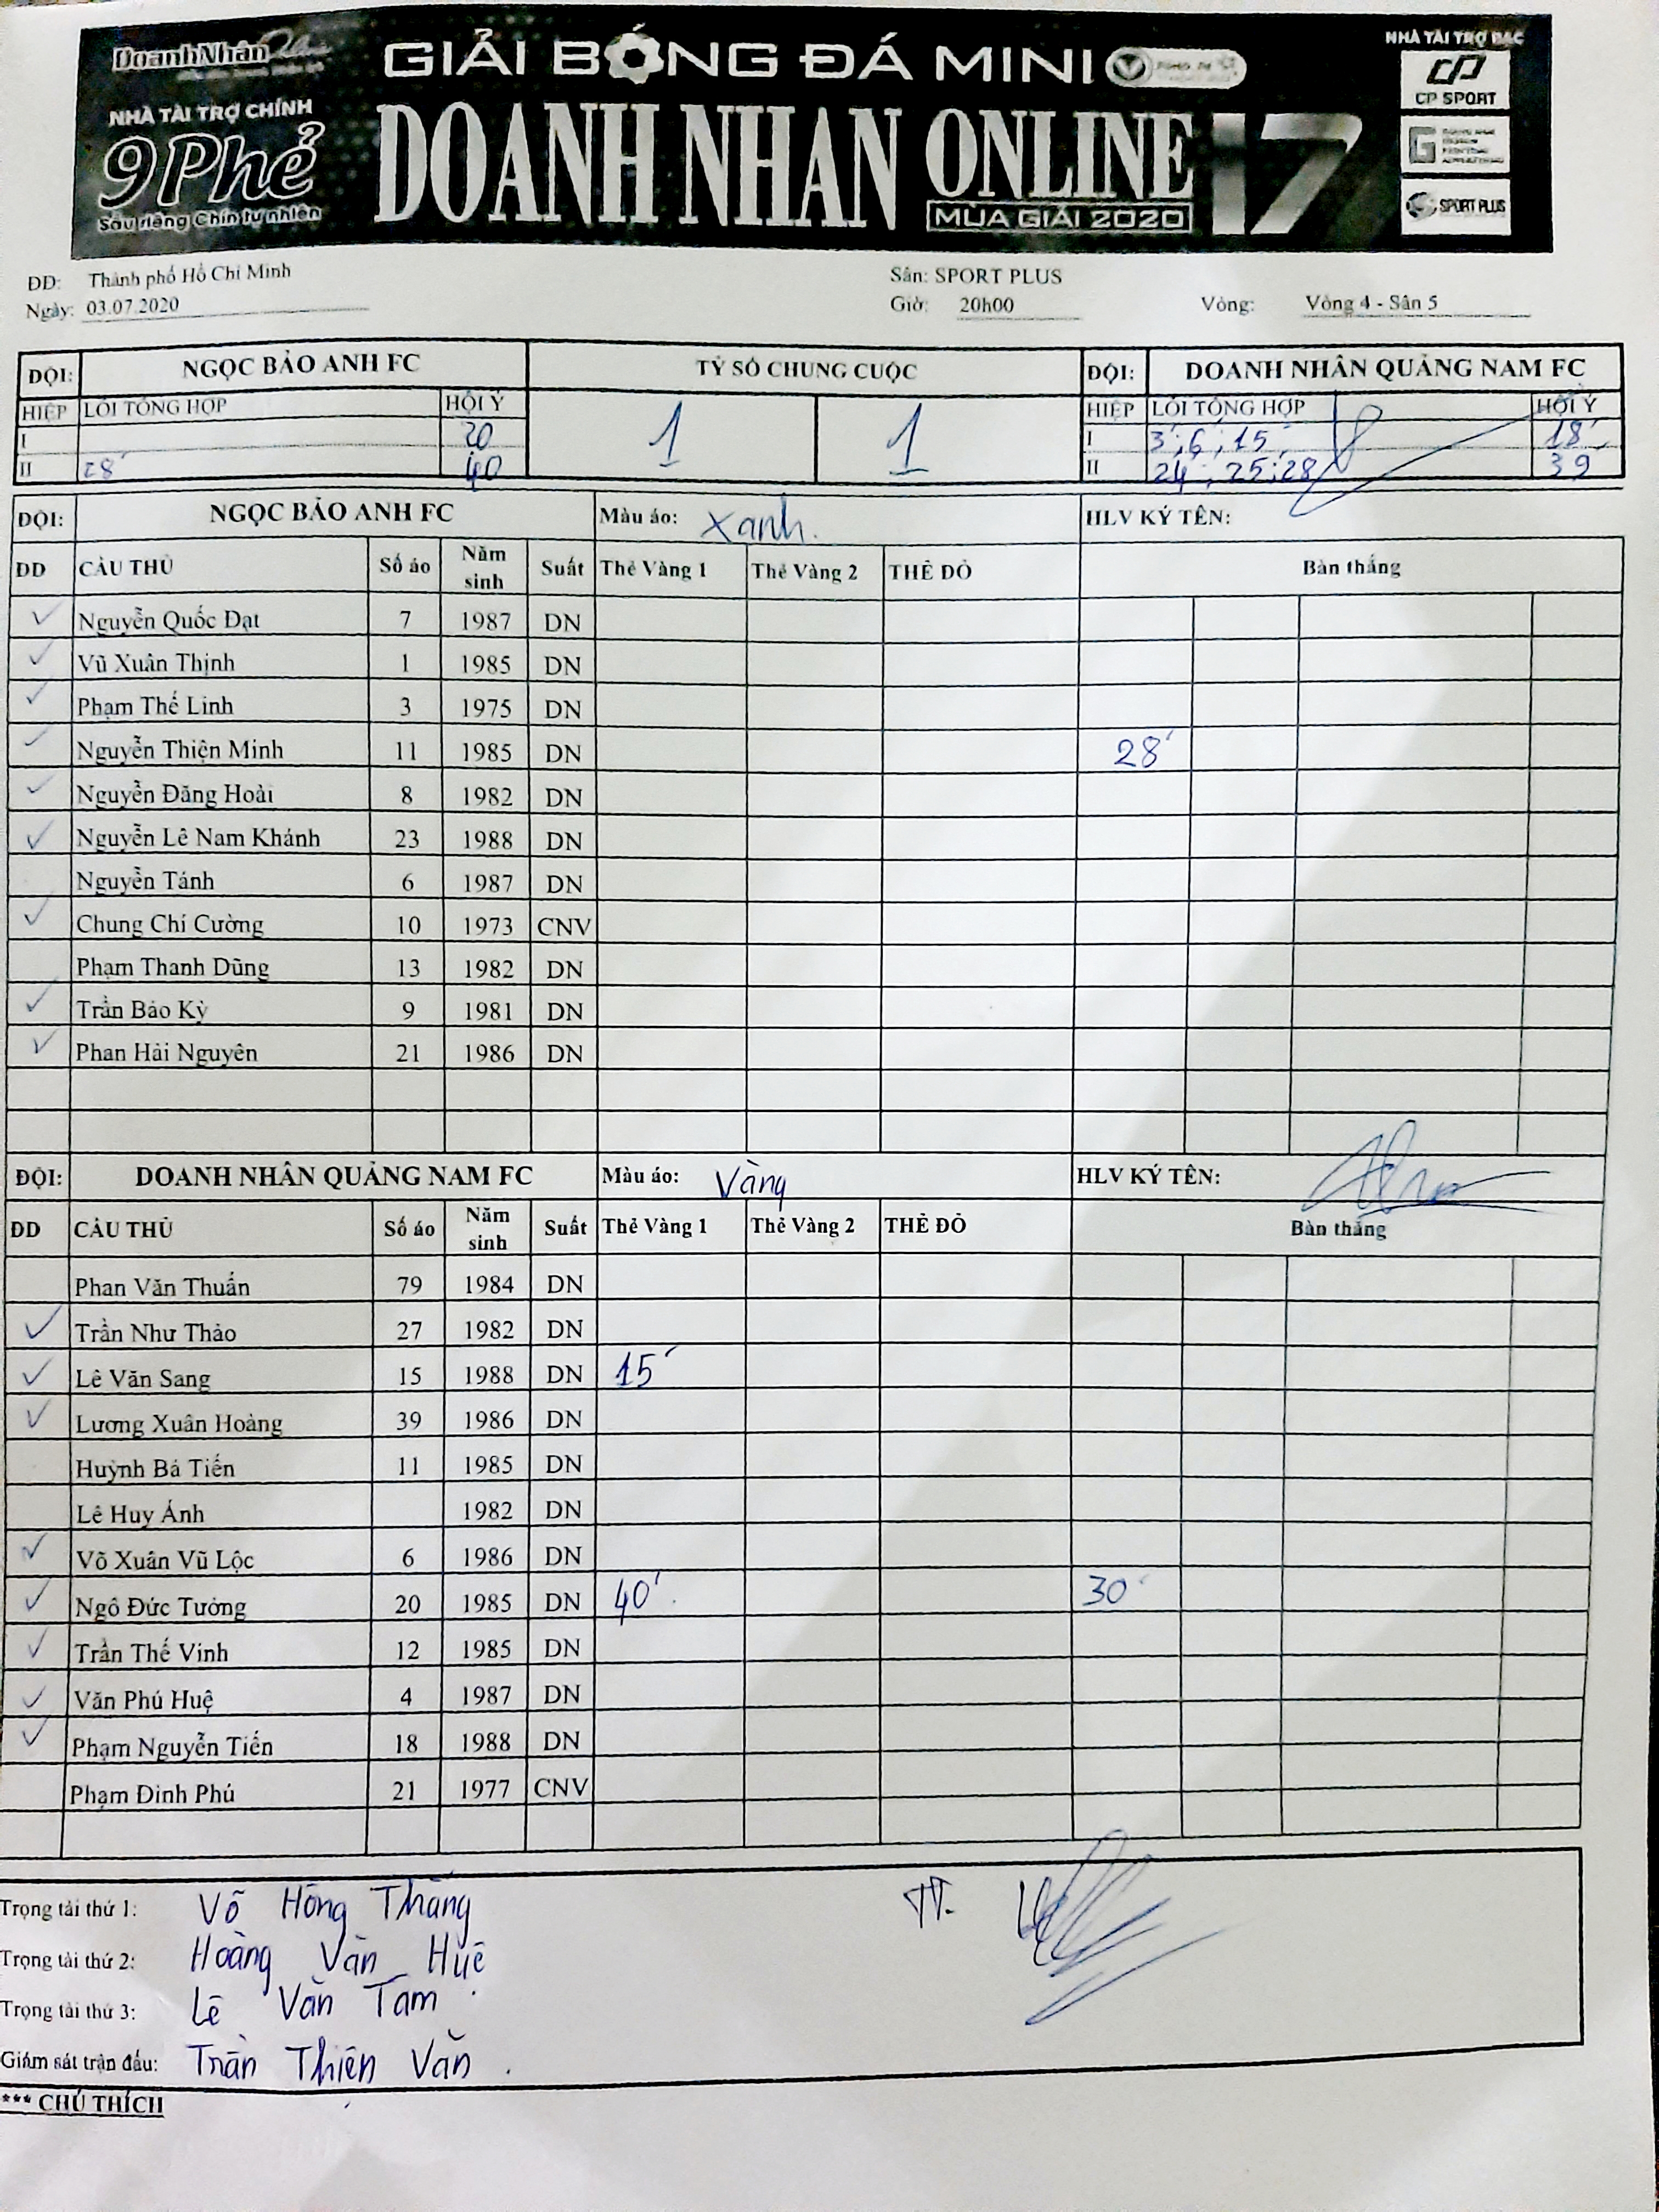 DoanhNhân Plus
NHÀ TÀI TRỢ CHÍNH
9Phẻ
Sầu riêng Chín tự nhiên
GIẢI BÓNG ĐÁ MINI
DOANH NHAN ONLINE 17
MÙA GIẢI 2020
NHÀ TÀI TRỢ BẠC
CP SPORT
SPORT PLUS
ĐD: Thành phố Hồ Chí Minh Sân: SPORT PLUS
Ngày: 03.07.2020 Giờ: 20h00 Vòng: Vòng 4 - Sân 5
ĐỘI: NGỌC BẢO ANH FC TỶ SỐ CHUNG CUỘC ĐỘI: DOANH NHÂN QUẢNG NAM FC
HIỆP LỖI TỔNG HỢP HỘI Ý 1 1 HIỆP LỖI TỔNG HỢP HỘI Ý
I 20 I 3'; 6'; 15' 18'
II 28' 40 II 24'; 25'; 28' 39'
ĐỘI: NGỌC BẢO ANH FC Màu áo: Xanh. HLV KÝ TÊN:
DD CẦU THỦ Số áo Năm sinh Suất Thẻ Vàng 1 Thẻ Vàng 2 THẺ ĐỎ Bàn thắng
✓ Nguyễn Quốc Đạt 7 1987 DN
✓ Vũ Xuân Thịnh 1 1985 DN
✓ Phạm Thế Linh 3 1975 DN
✓ Nguyễn Thiện Minh 11 1985 DN 28'
✓ Nguyễn Đăng Hoài 8 1982 DN
✓ Nguyễn Lê Nam Khánh 23 1988 DN
Nguyễn Tánh 6 1987 DN
✓ Chung Chí Cường 10 1973 CNV
Phạm Thanh Dũng 13 1982 DN
✓ Trần Bảo Kỳ 9 1981 DN
✓ Phan Hải Nguyên 21 1986 DN
ĐỘI: DOANH NHÂN QUẢNG NAM FC Màu áo: Vàng HLV KÝ TÊN:
DD CẦU THỦ Số áo Năm sinh Suất Thẻ Vàng 1 Thẻ Vàng 2 THẺ ĐỎ Bàn thắng
Phan Văn Thuấn 79 1984 DN
✓ Trần Như Thảo 27 1982 DN
✓ Lê Văn Sang 15 1988 DN 15'
✓ Lương Xuân Hoàng 39 1986 DN
Huỳnh Bá Tiến 11 1985 DN
Lê Huy Ánh 1982 DN
✓ Võ Xuân Vũ Lộc 6 1986 DN
✓ Ngô Đức Tưởng 20 1985 DN 40' 30'
✓ Trần Thế Vinh 12 1985 DN
✓ Văn Phú Huệ 4 1987 DN
✓ Phạm Nguyễn Tiến 18 1988 DN
Phạm Đình Phú 21 1977 CNV
Trọng tài thứ 1: Võ Hồng Thắng TT.
Trọng tài thứ 2: Hoàng Văn Huê
Trọng tài thứ 3: Lê Văn Tám
Giám sát trận đấu: Trần Thiện Văn.
*** CHÚ THÍCH